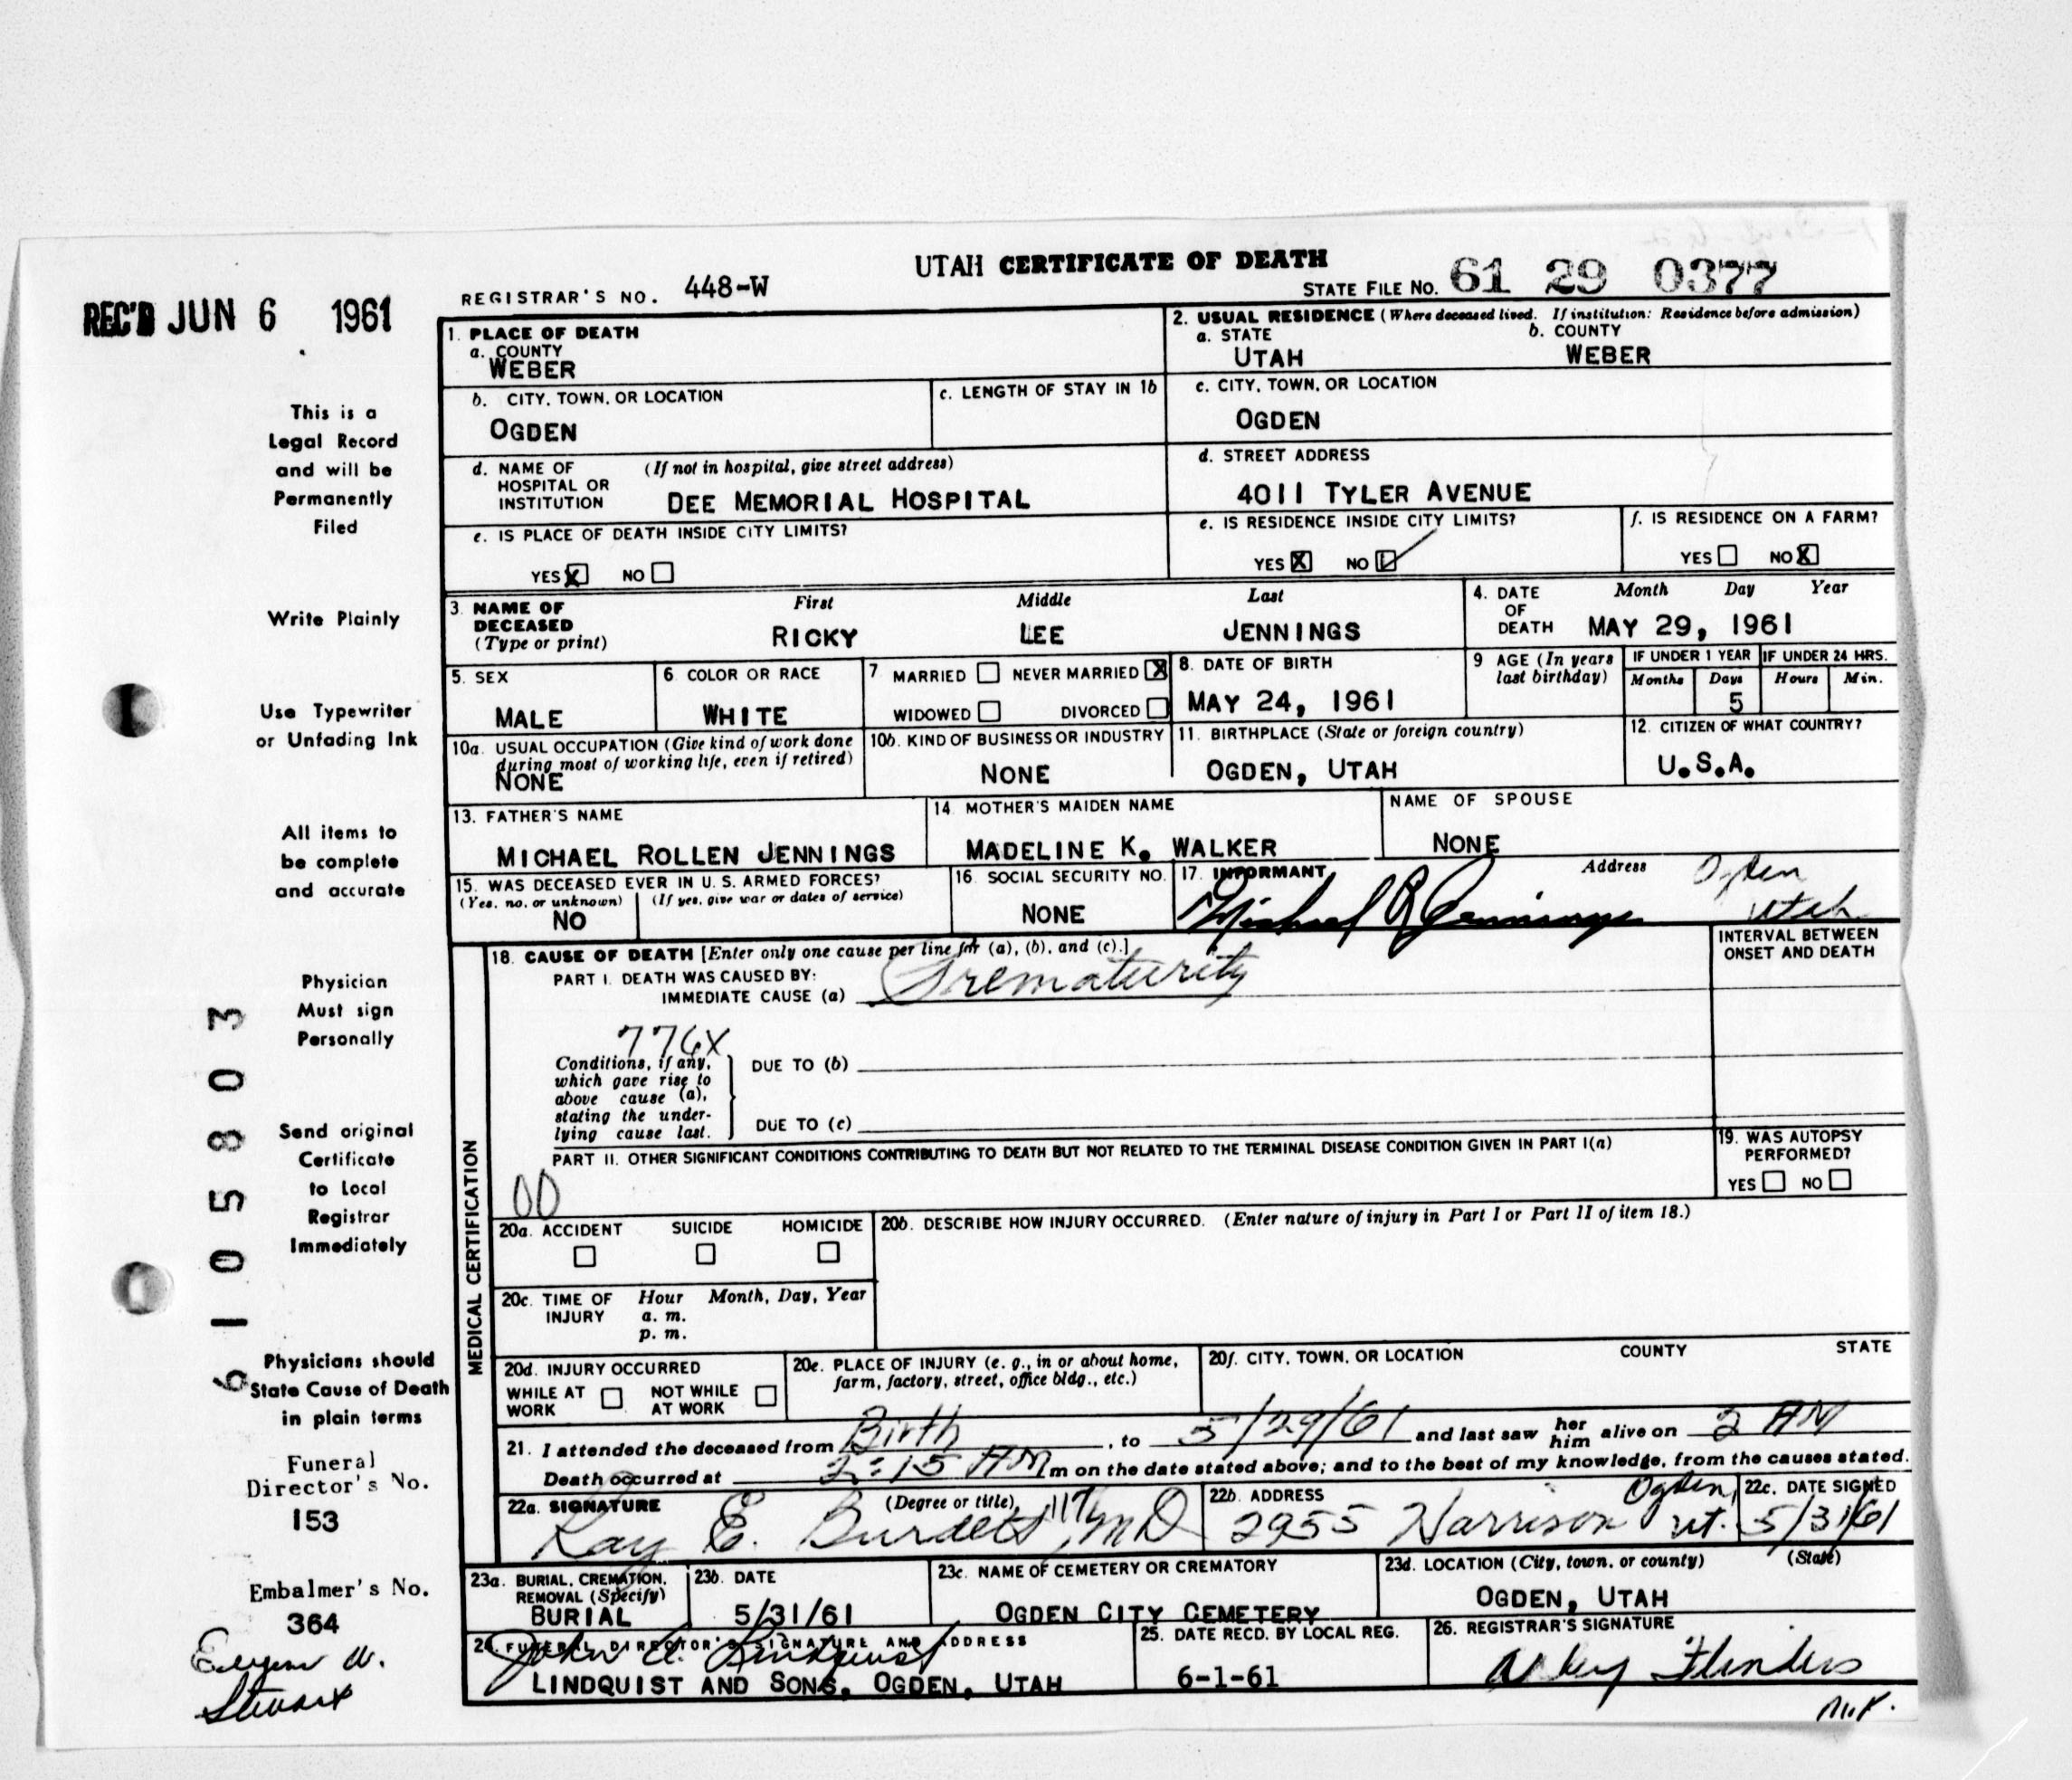 UTAH CERTIFICATE OF DEATH
REGISTRAR'S NO. 448-W
STATE FILE NO. 61 29 0377
REC'D JUN 6 1961
1. PLACE OF DEATH
a. COUNTY
WEBER
2. USUAL RESIDENCE (Where deceased lived. If institution: Residence before admission)
a. STATE b. COUNTY
UTAH WEBER
b. CITY, TOWN, OR LOCATION
OGDEN
c. LENGTH OF STAY IN 1b
c. CITY, TOWN, OR LOCATION
OGDEN
d. NAME OF (If not in hospital, give street address)
HOSPITAL OR
INSTITUTION DEE MEMORIAL HOSPITAL
d. STREET ADDRESS
4011 TYLER AVENUE
e. IS PLACE OF DEATH INSIDE CITY LIMITS?
YES X NO
e. IS RESIDENCE INSIDE CITY LIMITS?
YES X NO
f. IS RESIDENCE ON A FARM?
YES NO X
3. NAME OF DECEASED (Type or print)
First Middle Last
RICKY LEE JENNINGS
4. DATE OF DEATH Month Day Year
MAY 29, 1961
5. SEX
MALE
6. COLOR OR RACE
WHITE
7. MARRIED NEVER MARRIED X
WIDOWED DIVORCED
8. DATE OF BIRTH
MAY 24, 1961
9 AGE (In years last birthday)
IF UNDER 1 YEAR IF UNDER 24 HRS.
Months Days Hours Min.
5
10a. USUAL OCCUPATION (Give kind of work done
during most of working life, even if retired)
NONE
10b. KIND OF BUSINESS OR INDUSTRY
NONE
11. BIRTHPLACE (State or foreign country)
OGDEN, UTAH
12. CITIZEN OF WHAT COUNTRY?
U.S.A.
13. FATHER'S NAME
MICHAEL ROLLEN JENNINGS
14. MOTHER'S MAIDEN NAME
MADELINE K. WALKER
NAME OF SPOUSE
NONE
15. WAS DECEASED EVER IN U. S. ARMED FORCES?
(Yes, no, or unknown) (If yes, give war or dates of service)
NO
16. SOCIAL SECURITY NO.
NONE
17. INFORMANT Address
Michael R Jennings Ogden
Utah
MEDICAL CERTIFICATION
18. CAUSE OF DEATH [Enter only one cause per line for (a), (b), and (c).]
PART I. DEATH WAS CAUSED BY:
IMMEDIATE CAUSE (a) Prematurity
INTERVAL BETWEEN
ONSET AND DEATH
776X
Conditions, if any,
which gave rise to
above cause (a),
stating the under-
lying cause last.
DUE TO (b)
DUE TO (c)
PART II. OTHER SIGNIFICANT CONDITIONS CONTRIBUTING TO DEATH BUT NOT RELATED TO THE TERMINAL DISEASE CONDITION GIVEN IN PART I(a)
00
19. WAS AUTOPSY
PERFORMED?
YES NO
20a. ACCIDENT SUICIDE HOMICIDE
20b. DESCRIBE HOW INJURY OCCURRED. (Enter nature of injury in Part I or Part II of item 18.)
20c. TIME OF INJURY Hour Month, Day, Year
a. m.
p. m.
20d. INJURY OCCURRED
WHILE AT WORK NOT WHILE AT WORK
20e. PLACE OF INJURY (e. g., in or about home,
farm, factory, street, office bldg., etc.)
20f. CITY, TOWN, OR LOCATION COUNTY STATE
21. I attended the deceased from Birth, to 5/29/61 and last saw her him alive on 2 AM
Death occurred at 2:15 AM m on the date stated above; and to the best of my knowledge, from the causes stated.
22a. SIGNATURE (Degree or title)
Ray E. Burdett, MD
22b. ADDRESS
2955 Harrison Ogden, Ut.
22c. DATE SIGNED
5/31/61
23a. BURIAL, CREMATION,
REMOVAL (Specify)
BURIAL
23b. DATE
5/31/61
23c. NAME OF CEMETERY OR CREMATORY
OGDEN CITY CEMETERY
23d. LOCATION (City, town, or county) (State)
OGDEN, UTAH
24. FUNERAL DIRECTOR'S SIGNATURE AND ADDRESS
John A. Lindquist
LINDQUIST AND SONS, OGDEN, UTAH
25. DATE RECD. BY LOCAL REG.
6-1-61
26. REGISTRAR'S SIGNATURE
Flinders
This is a
Legal Record
and will be
Permanently
Filed
Write Plainly
Use Typewriter
or Unfading Ink
All items to
be complete
and accurate
Physician
Must sign
Personally
Send original
Certificate
to Local
Registrar
Immediately
Physicians should
State Cause of Death
in plain terms
6105803
Funeral
Director's No.
153
Embalmer's No.
364
Eugene W.
Stewart